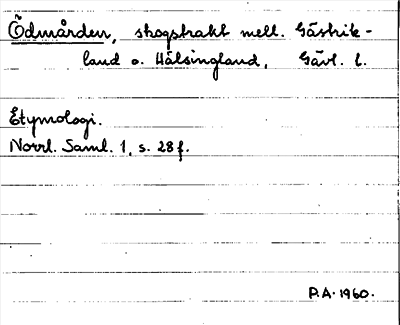 Ödmården, skogstrakt mell. Gästrik-
land o. Hälsingland, Gävl. l.
Etymologi.
Norrl. Saml. 1, s. 28 f.
P.A. 1960.